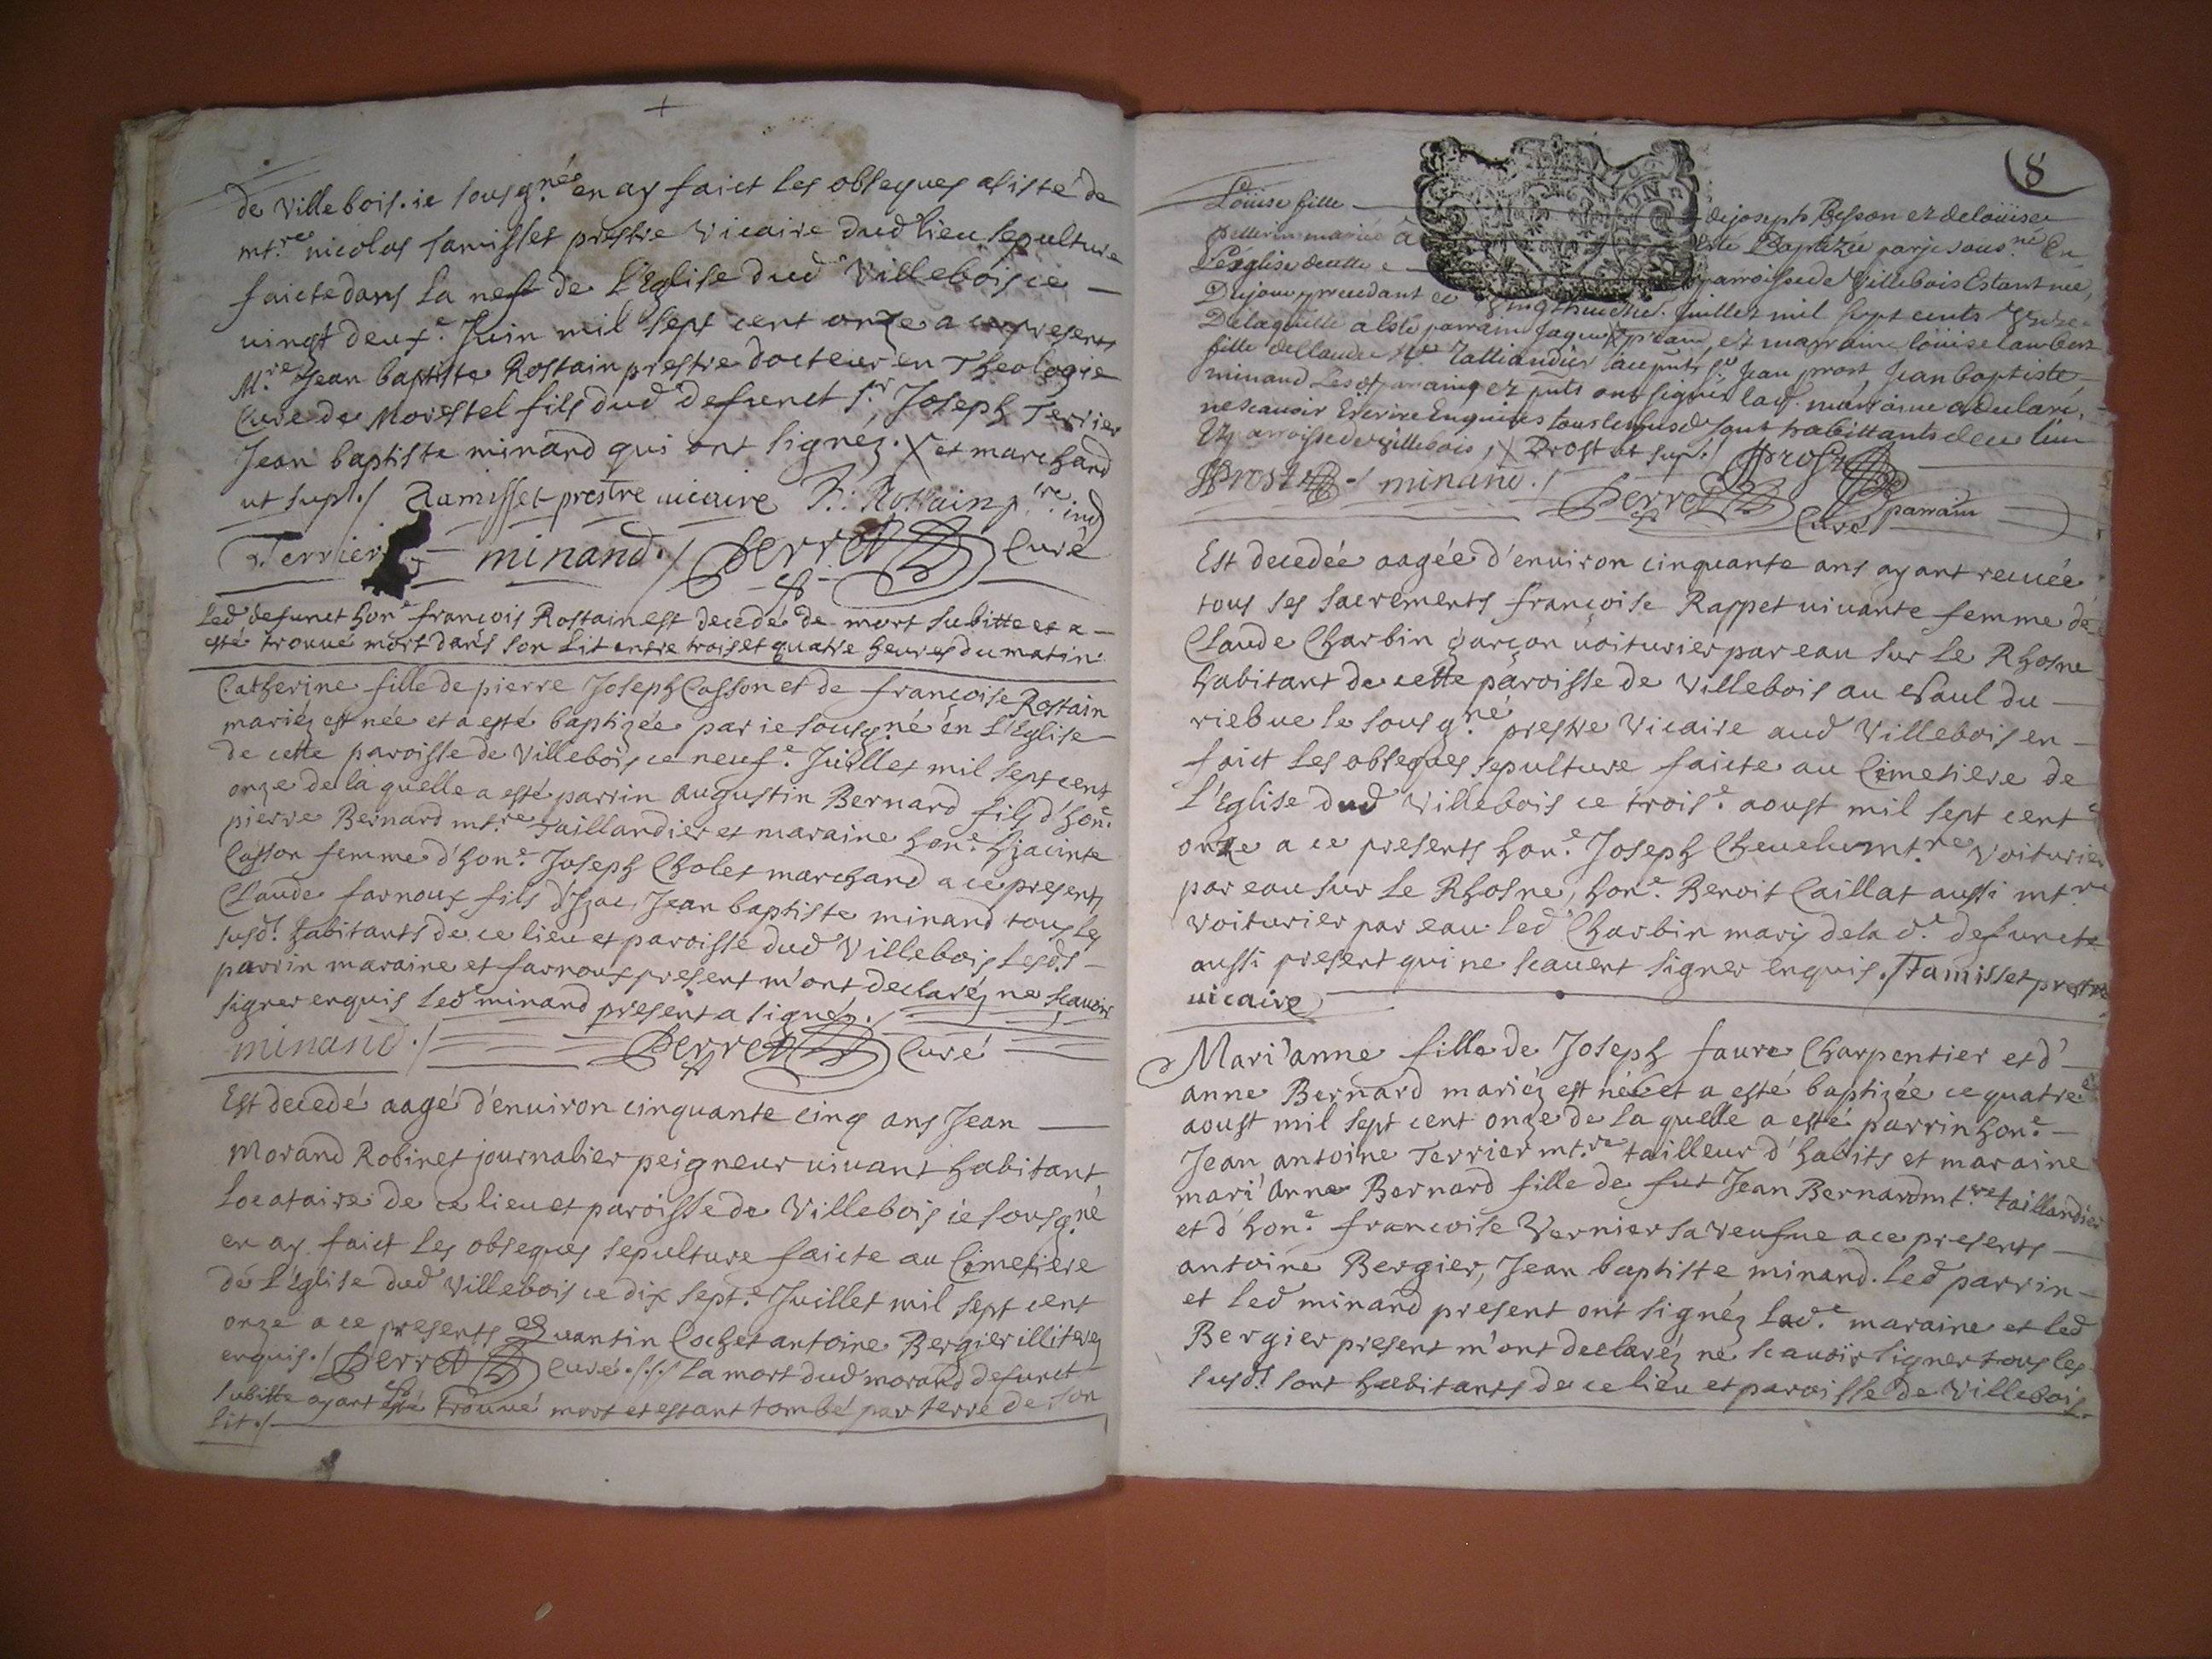 de Villebois. ie sousg.né en ay faict les obseques asisté de
mt.re nicolas Tamisset prestre Vicaire dud lieu sepulture
faicte dans la nef de L'Eglise dud Villebois ce
vingt deux.e Juin mil sept cent onze a ce presents
M.re Jean baptiste Rostain prestre docteur en Theologie
Curé de Morestel fils dud defunct s.r Joseph Terrier
Jean baptiste minand qui ont signéz. X et marchand
ut sup./ Tamisset prestre vicaire Rostain p.re
Terrier minand./ Perret Curé
Led defunct hon.e francois Rostain est decedé de mort subitte et a
esté trouué mort dans son Lit entre trois et quatre heures du matin.
Catherine fille de pierre Joseph Casson et de francoise Rostain
mariéz est née et a esté baptizée par ie sousg.né en L'Eglise
de cette paroisse de Villebois ce neuf.e Juillet mil sept cent
onze de la quelle a esté parrin augustin Bernard fils d'hon.e
pierre Bernard mt.re Taillandier et maraine hon.e hjacinte
Casson femme d'hon.e Joseph Cholet marchand a ce presents
Claude farnoux fils d'Izac, Jean baptiste minand tous les
susd.t habitants de ce lieu et paroisse dud Villebois Lesd.s
parrin maraine et farnoux present m'ont declaréz ne scauoir
signer enquis led minand present a signéz./
minand./ Perret Curé
Est decedé aagé d'enuiron cinquante cinq ans Jean
Morand Robinet journalier peigneur uiuant habitant
Locataire de ce lieu et paroisse de Villebois ie sousg.né
en ay faict Les obseques sepulture faicte au Cimetiere
de L'Eglise dud Villebois ce dix sept.e Juillet mil sept cent
onze a ce presents Quantin Cochet antoine Bergier illiterez
enquis./ Perret Curé./././ La mort dud morand defunct
subitte ayant esté trouué mort et estant tombé par terre de son
lit./
8
Loüise fille de joseph Besson et de loüise
pellerin mariéz a esté Baptizée par je sous.né En
L'église de cette parroisse de Villebois Estant née,
Du jour precedant ce Juillet mil sept cents
De laquelle a Esté parrain Jaque X prost, et marraine loüise lambert
fille de Claude Talliandier s.r Jean prost, Jean baptiste
minand Les parraing et pnts ont signés lad. marraine a declaré,
ne scauoir Escrire Enquises tous lesusd sont habittants de ce lieu
Et parroisse de Villebois, X Prost ut sup./ JProst
JProst ./ minand./ Perret Curé parrain
Est decedée aagée d'enuiron cinquante ans ayant receuée
tous ses sacrements françoise Rappet uiuante femme de
Claude Charbin garçon uoiturier par eau sur Le Rhosne
habitant de cette paroisse de Villebois au Saul du
riebue le sousg.né prestre Vicaire aud Villebois en
faict Les obseques sepulture faicte au Cimetiere de
L'Eglise dud Villebois ce trois.e aoust mil sept cent
onze a ce presents hon.e Joseph Cheuelu mt.re Voiturier
par eau sur Le Rhosne, hon.e Benoit Caillat aussi mt.re
Voiturier par eau. led Charbin mary de la d.e defuncte
aussi present qui ne scauent signer enquis./ Tamisset prestre
uicaire
Mari'anne fille de Joseph faure Charpentier et d'
anne Bernard mariéz est née et a esté baptizée ce quatre.e
aoust mil sept cent onze de la quelle a esté parrin hon.e
Jean antoine Terrier mt.re tailleur d'habits et maraine
mari'anne Bernard fille de fut Jean Bernard mt.re taillandier
et d'hon.e francoise Vernier sa Veufue a ce presents
antoine Bergier, Jean baptiste minand. led parrin
et led minand present ont signéz Lad.e maraine et led
Bergier present m'ont declaréz ne scauoir signer tous les
susd.t sont habitants de ce lieu et paroisse de Villebois.